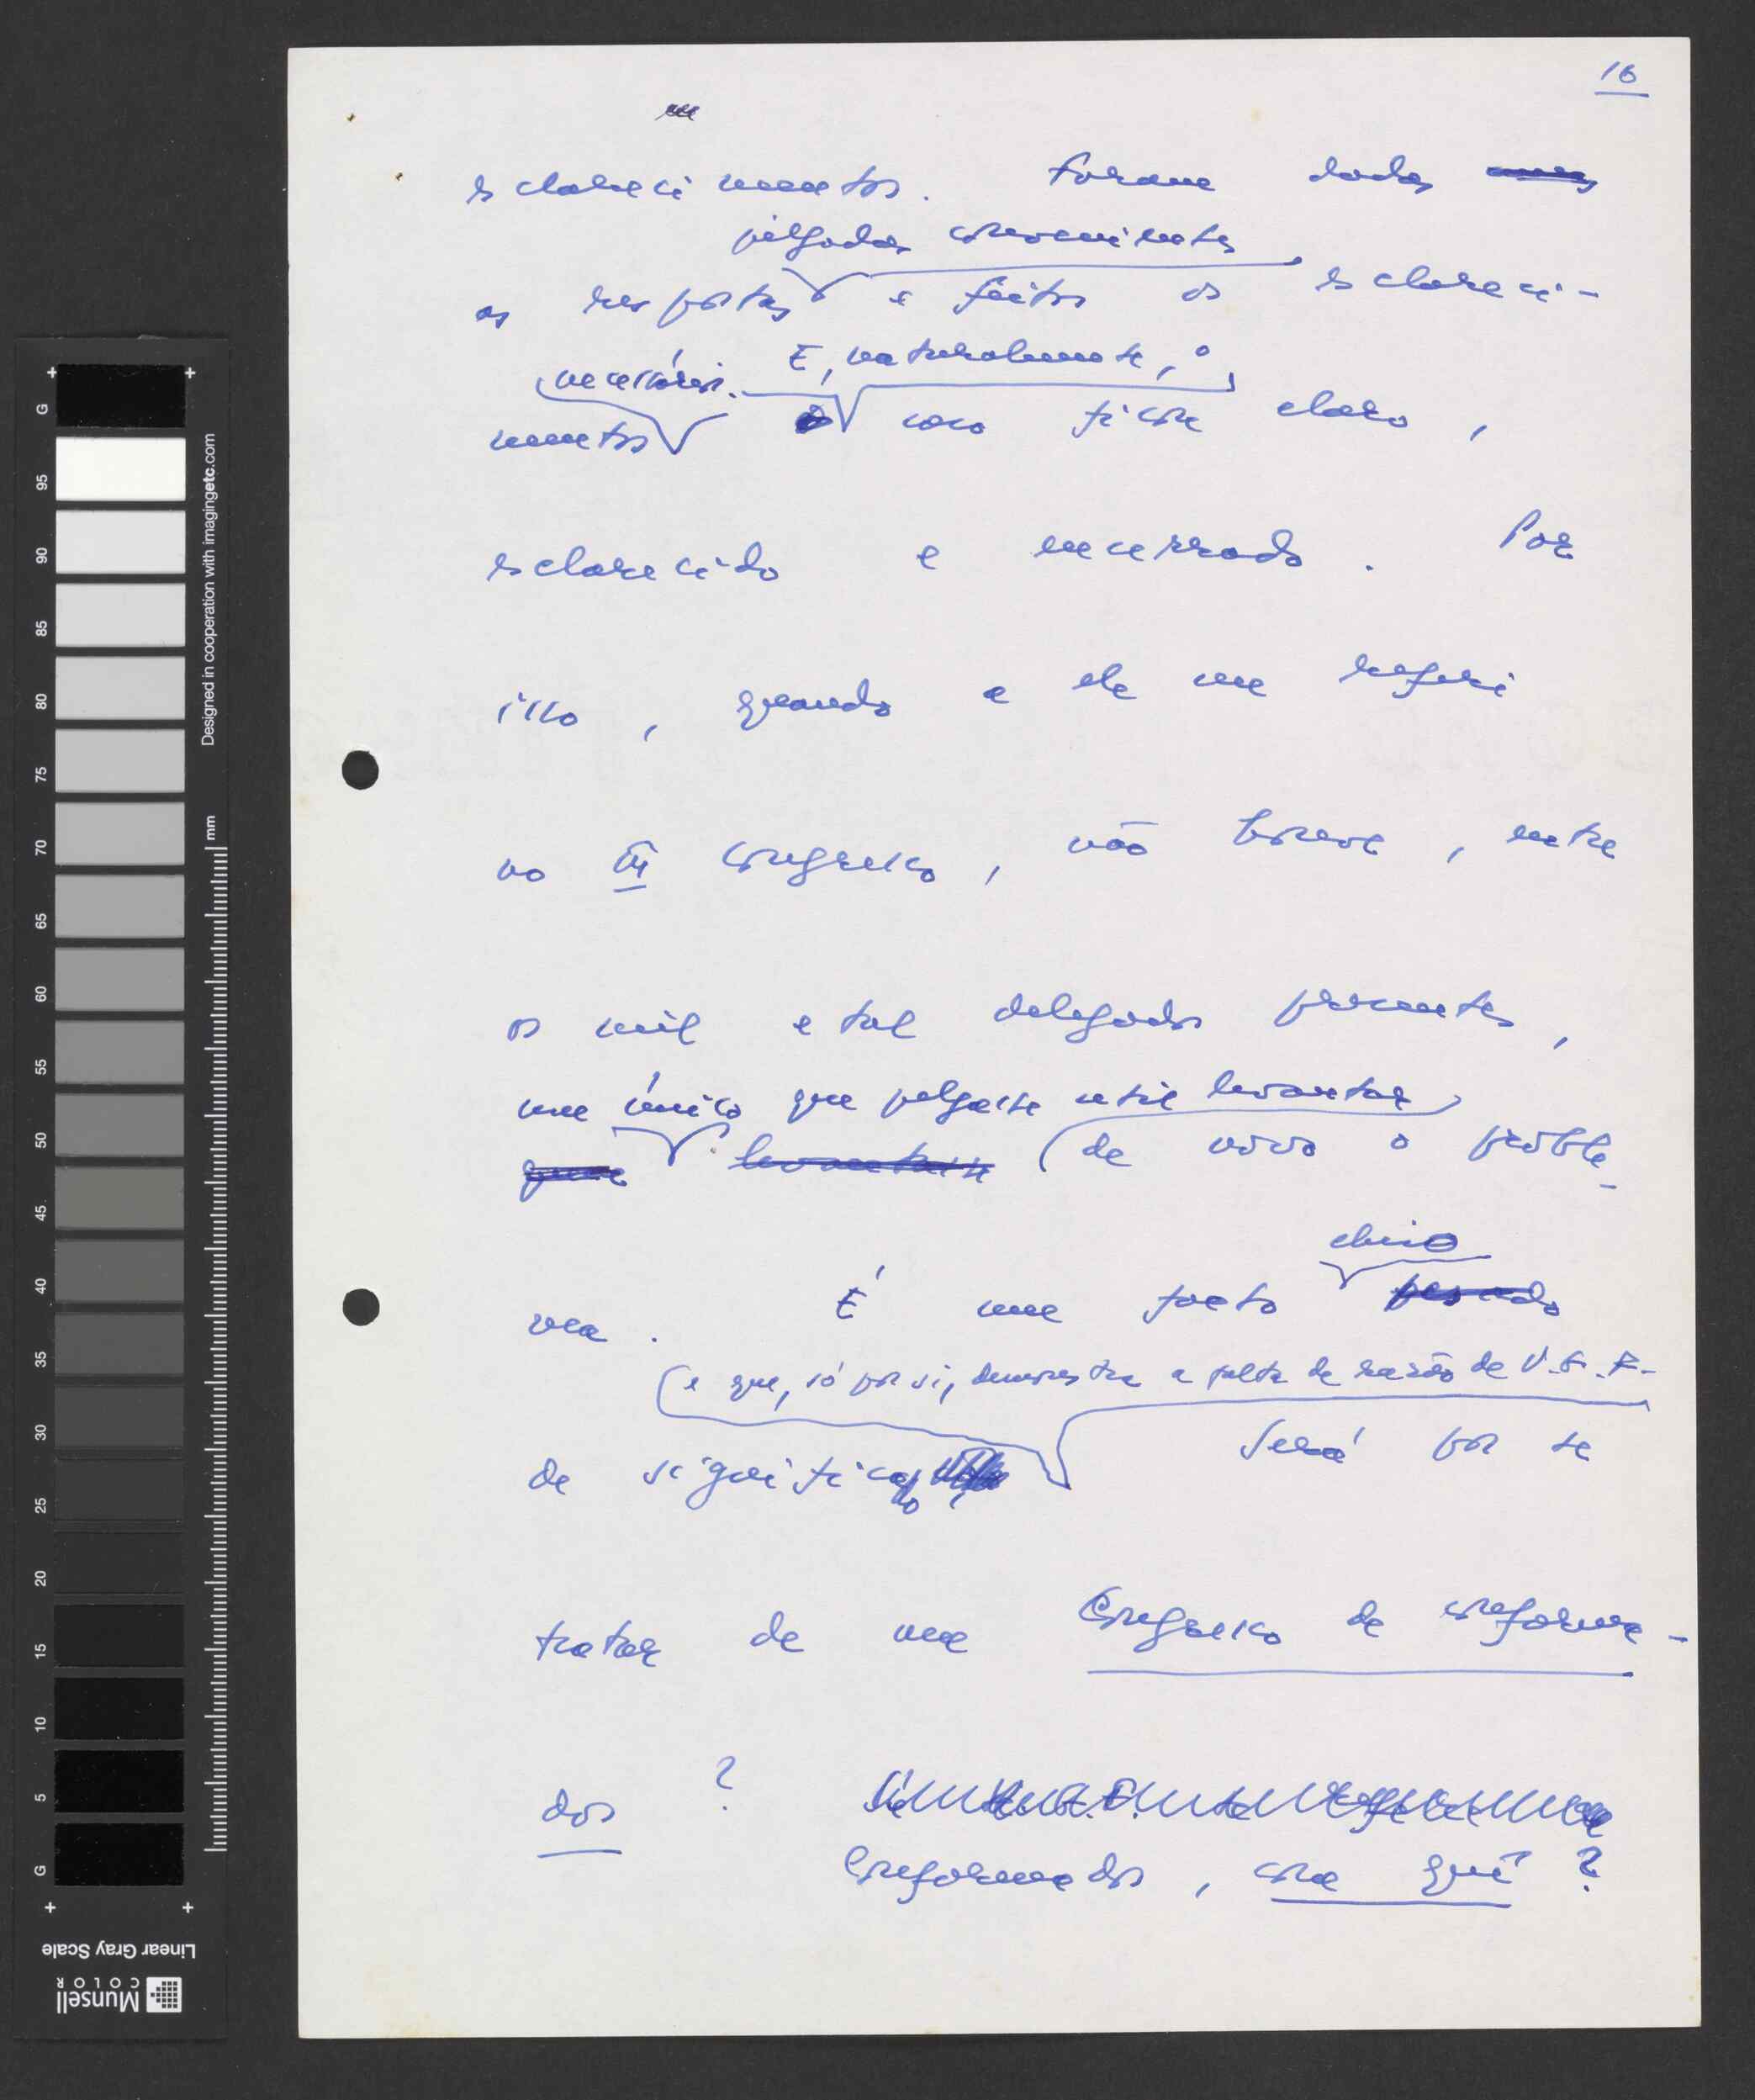 16
esclarecimentos. Foram dadas
julgadas convenientes
as respostas e feitos os esclareci-
necessários. E, naturalmente, o
mentos caso ficou claro,
esclarecido e encerrado. Por
isso, quando a ele me referi
no III Congresso, não houve, entre
os mil e tal delegados presentes,
um único que julgasse útil levantar
que levantasse de novo o proble-
cheio
ma. É um facto pesado
e que, só por si, demonstra a falta de razão de V.G.F.
de significado Será por se
tratar de um Congresso de conforma-
dos?
Conformados, com quê?
G
95
90
85
80
75
70
65
60
55
50
45
40
35
30
25
20
15
10
5
G
Designed in cooperation with imagingetc.com
mm
Linear Gray Scale
Munsell
COLOR